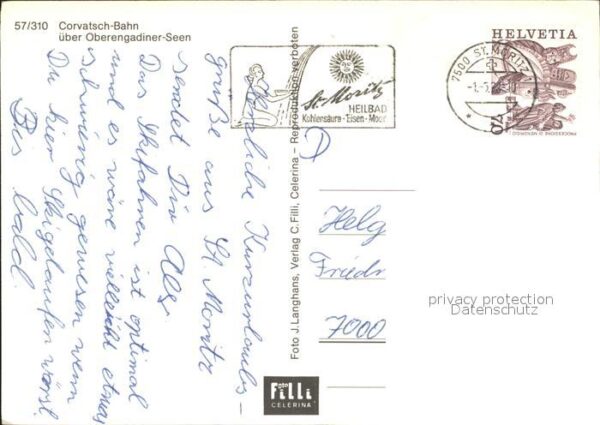 57/310 Corvatsch-Bahn
über Oberengadiner-Seen
Herzliche Kurzurlaubs-
grüße aus St. Moritz
sendet Dir
Das Skifahren ist optimal
und es wäre vielleicht etwas
schwierig gewesen wenn
Du hier Skigelaufen wärst.
Bis bald.
Foto J. Langhans, Verlag C. Filli, Celerina - Reproduktion verboten
St. Moritz
HEILBAD
Kohlensäure-Eisen-Moor
7500 ST. MORITZ
HELVETIA
70
D
Helg
Friedr
7000
privacy protection
Datenschutz
Foto
Filli
CELERINA